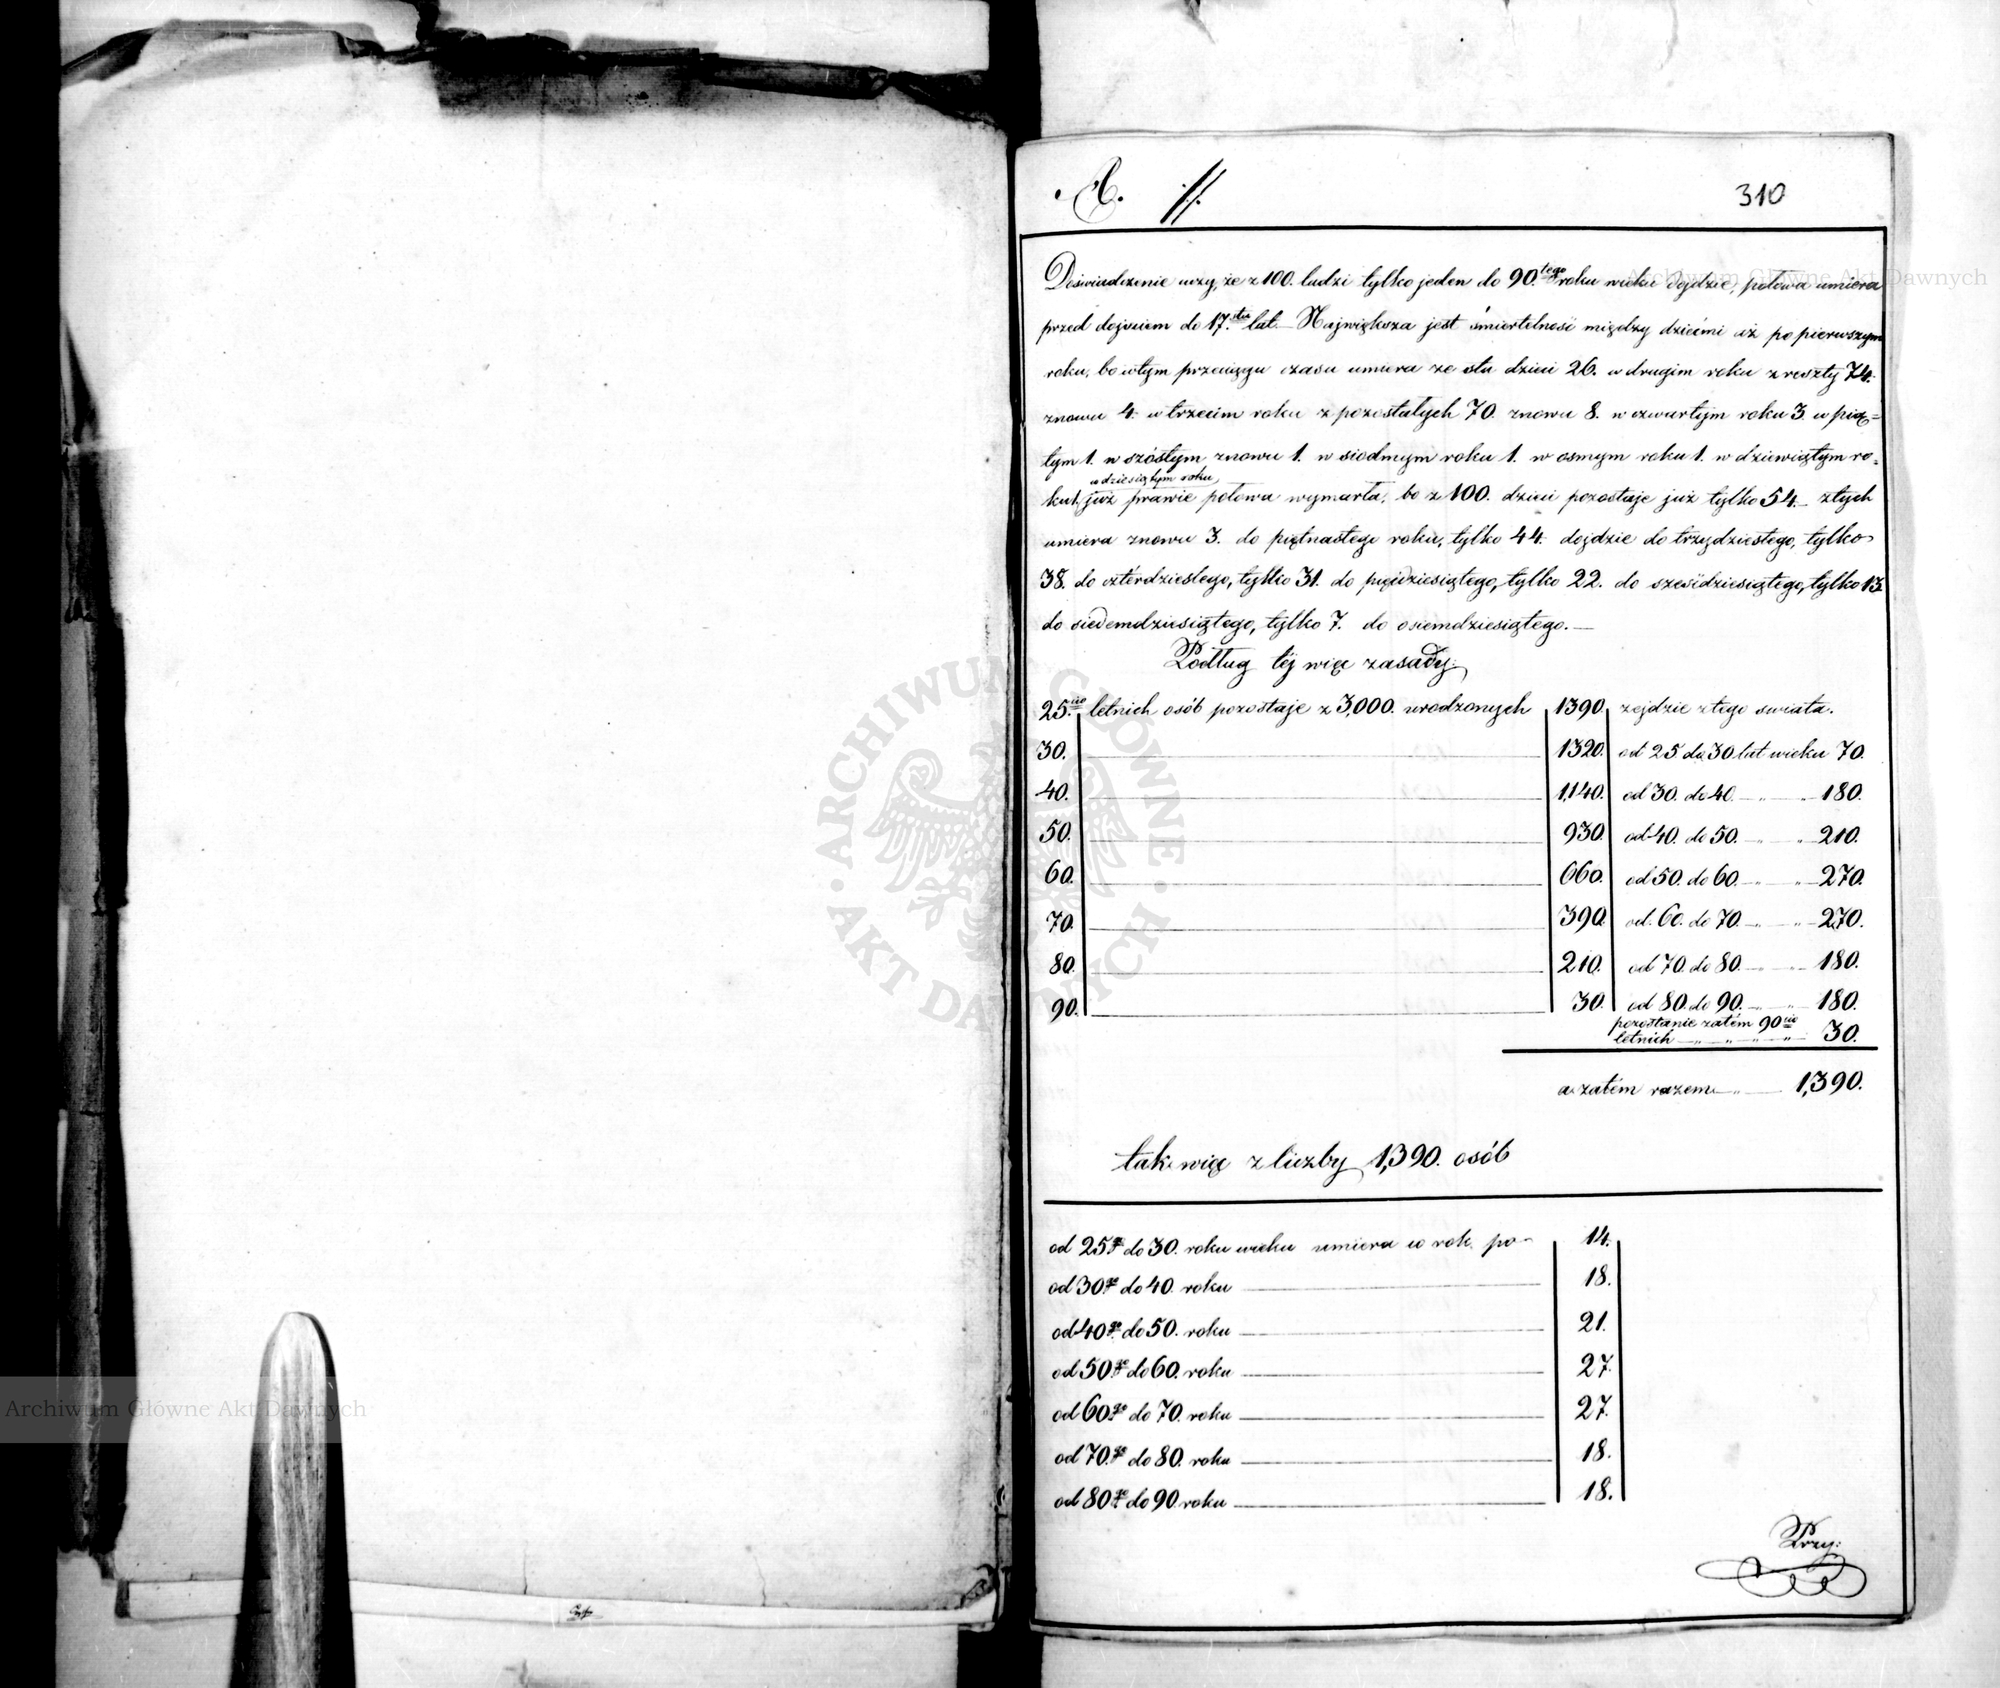 A. //.
310
Doświadczenie uczy, że z 100. ludzi tylko jeden do 90.tego roku wieku dojdzie, połowa umiera
przed dojściem do 17.stu lat – Największa jest śmiertelność między dziećmi aż po pierwszym
roku, bo w tym przeciągu czasu umiera ze stu dzieci 26. w drugim roku z reszty 74.
znowu 4. w trzecim roku z pozostałych 70. znowu 8. w czwartym roku 3. w pią=
tym 1. w szóstym znowu 1. w siodmym roku 1. w osmym roku 1. w dziewiątym ro=
w dziesiątym roku
ku 1. już prawie połowa wymarła, bo z 100. dzieci pozostaje już tylko 54. – z tych
umiera znowu 3. do piętnastego roku, tylko 44. dojdzie do trzydziestego, tylko
38. do czterdziestego, tylko 31. do pięćdziesiątego, tylko 22. do sześćdziesiątego, tylko 13
do siedemdziesiątego, tylko 7. do osiemdziesiątego. —
Podług téj więc zasady:
25.cio letnich osób pozostaje z 3,000. urodzonych 1390. zejdzie z tego swiata.
30. 1320. od 25 do 30 lat wieku 70.
40. 1,140. od 30. do 40. — " — " — 180.
50. 930. od 40. do 50. — " — " — 210.
60. 660. od 50. do 60. — " — " — 270.
70. 390. od 60. do 70. — " — " — 270.
80. 210. od 70. do 80. — " — " — 180.
90. 30. od 80. do 90. — " — 180.
pozostanie zatém 90cio
letnich — " — " — " — " — 30.
a zatém razem — " — 1,390.
tak więc z liczby 1,390. osób
od 25go do 30. roku wieku umiera w rok po – 14.
od 30go do 40. roku 18.
od 40go do 50. roku 21.
od 50go do 60. roku 27.
od 60go do 70. roku 27.
od 70go do 80. roku 18.
od 80go do 90 roku 18.
Przy:
Archiwum Główne Akt Dawnych
ARCHIWUM GŁÓWNE · AKT DAWNYCH ·
Archiwum Główne Akt Dawnych